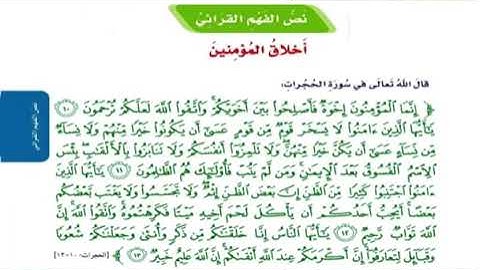 نص الفهم القرائي
أخلاق المؤمنين
قال الله تعالى في سورة الحجرات:
﴿ إِنَّمَا الْمُؤْمِنُونَ إِخْوَةٌ فَأَصْلِحُوا بَيْنَ أَخَوَيْكُمْ وَاتَّقُوا اللَّهَ لَعَلَّكُمْ تُرْحَمُونَ ١٠
يَا أَيُّهَا الَّذِينَ ءَامَنُوا لَا يَسْخَرْ قَوْمٌ مِّن قَوْمٍ عَسَىٰ أَن يَكُونُوا خَيْرًا مِّنْهُمْ وَلَا نِسَاءٌ
مِّن نِّسَاءٍ عَسَىٰ أَن يَكُنَّ خَيْرًا مِّنْهُنَّ وَلَا تَلْمِزُوا أَنفُسَكُمْ وَلَا تَنَابَزُوا بِالْأَلْقَابِ بِئْسَ
الِاسْمُ الْفُسُوقُ بَعْدَ الْإِيمَانِ وَمَن لَّمْ يَتُبْ فَأُولَٰئِكَ هُمُ الظَّالِمُونَ ١١ يَا أَيُّهَا الَّذِينَ
ءَامَنُوا اجْتَنِبُوا كَثِيرًا مِّنَ الظَّنِّ إِنَّ بَعْضَ الظَّنِّ إِثْمٌ وَلَا تَجَسَّسُوا وَلَا يَغْتَب بَّعْضُكُم
بَعْضًا أَيُحِبُّ أَحَدُكُمْ أَن يَأْكُلَ لَحْمَ أَخِيهِ مَيْتًا فَكَرِهْتُمُوهُ وَاتَّقُوا اللَّهَ إِنَّ
اللَّهَ تَوَّابٌ رَّحِيمٌ ١٢ يَا أَيُّهَا النَّاسُ إِنَّا خَلَقْنَاكُم مِّن ذَكَرٍ وَأُنثَىٰ وَجَعَلْنَاكُمْ شُعُوبًا
وَقَبَائِلَ لِتَعَارَفُوا إِنَّ أَكْرَمَكُمْ عِندَ اللَّهِ أَتْقَاكُمْ إِنَّ اللَّهَ عَلِيمٌ خَبِيرٌ ١٣ ﴾ [الحجرات: ١٠-١٣]
نص الفهم القرائي